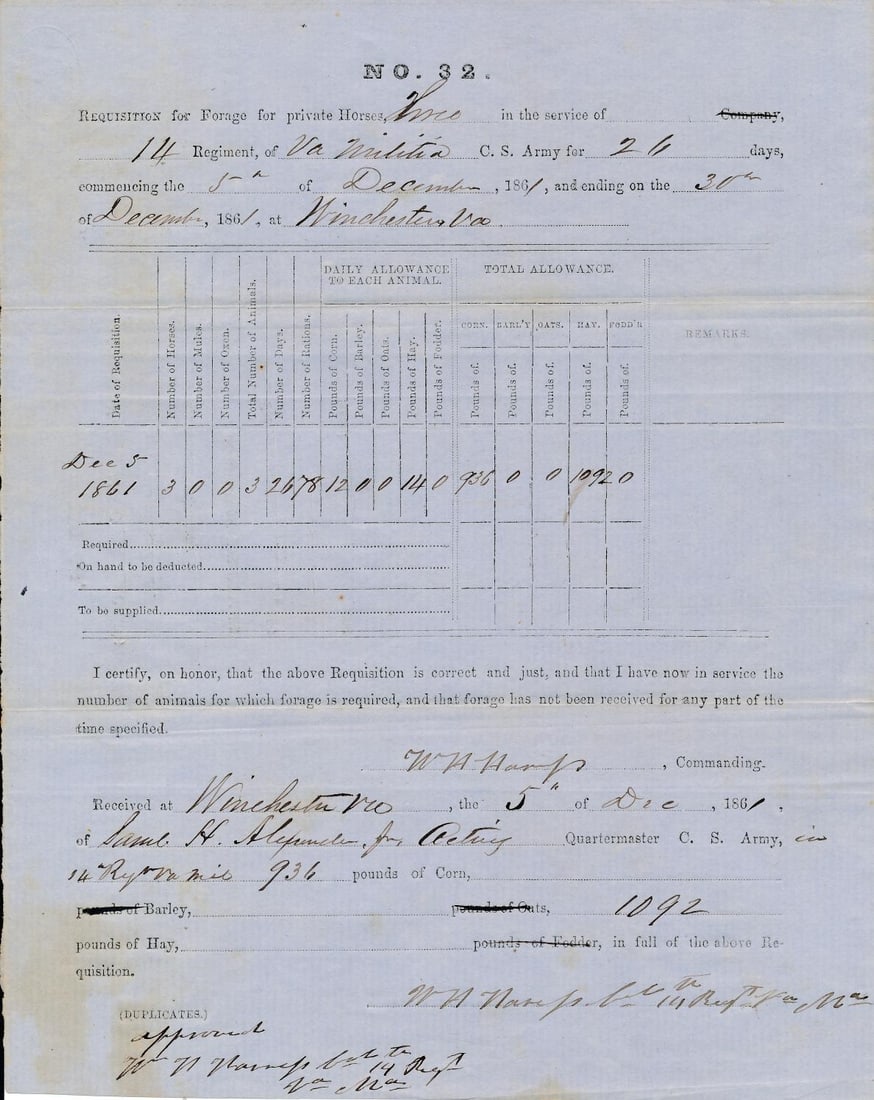 NO. 32.
REQUISITION for Forage for private Horses, three in the service of Company,
14 Regiment, of Va Militia C. S. Army for 26 days,
commencing the 5th of December, 1861, and ending on the 30th
of December, 1861, at Winchester, Va
DAILY ALLOWANCE TO EACH ANIMAL. TOTAL ALLOWANCE.
CORN. BARL'Y OATS. HAY. FODD'R REMARKS.
Date of Requisition. Number of Horses. Number of Mules. Number of Oxen. Total Number of Animals. Number of Days. Number of Rations. Pounds of Corn. Pounds of Barley. Pounds of Oats. Pounds of Hay. Pounds of Fodder. Pounds of. Pounds of. Pounds of. Pounds of. Pounds of.
Dec 5
1861 3 0 0 3 26 78 12 0 0 14 0 936 0 0 1092 0
Required
On hand to be deducted
To be supplied
I certify, on honor, that the above Requisition is correct and just, and that I have now in service the
number of animals for which forage is required, and that forage has not been received for any part of the
time specified.
W H Harness, Commanding.
Received at Winchester Va, the 5" of Dec, 1861,
of Saml. H. Alexander, Jr, Acting Quartermaster C. S. Army, in
14th Regt Va Mil 936 pounds of Corn,
pounds of Barley, pounds of Oats, 1092
pounds of Hay, pounds of Fodder, in full of the above Re-
quisition.
W H Harness Col 14th Regt Va Ma
(DUPLICATES.)
approved
Wm H Harness Col 14th Regt
Va Ma